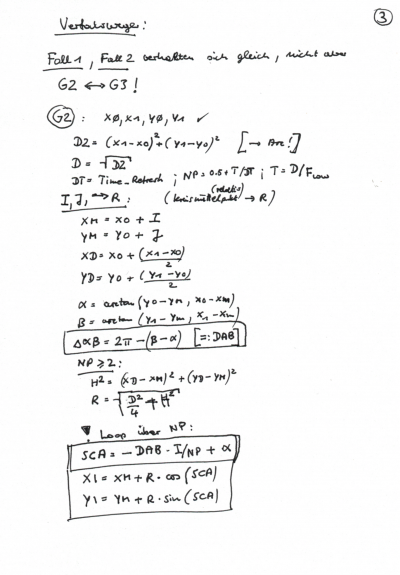 ③
Verfahrwege:
Fall 1, Fall 2 verhalten sich gleich, nicht aber
G2 ↔ G3!
G2: X0, X1, Y0, Y1 ✓
D2 = (X1-X0)² + (Y1-Y0)² [→ Arc!]
D = √D2
DT = Time_Refresh ; NP = 0.5 + T/DT ; T = D/F
I, J, → R: (Kreismittelpkt (relativ) → R)
XM = X0 + I
YM = Y0 + J
XD = X0 + (X1-X0)/2
YD = Y0 + (Y1-Y0)/2
α = arctan (Y0-YM, X0-XM)
β = arctan (Y1-YM, X1-XM)
ΔαB = 2π - (β-α) [=: DAB]
NP ≥ 2:
H² = (XD-XM)² + (YD-YM)²
R = √(D²/4 + H²)
Loop über NP:
SCA = -DAB · I/NP + α
XI = XM + R · cos (SCA)
YI = YM + R · sin (SCA)